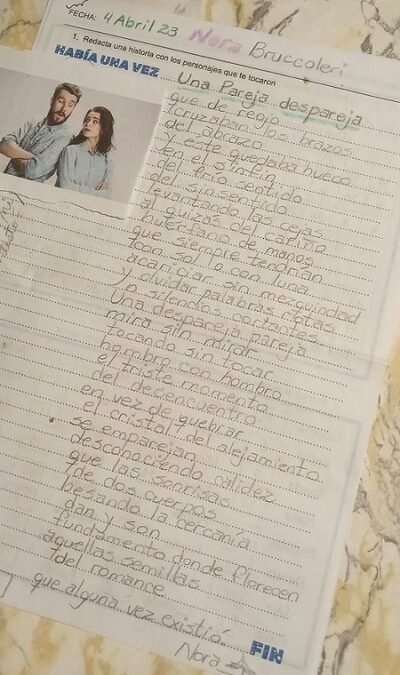 FECHA: 4 Abril 23 Nora Bruccoleri
1. Redacta una historia con los personajes que te tocaron
HABÍA UNA VEZ Una Pareja despareja
que de regio
cruzaban los brazos
del abrazo
y este quedaba hueco
en el sinfín
del frío sentido
del sinsentido
levantando las cejas
al quizás del cariño
huérfano de manos
que siempre tendrían
con sol o con luna
acariciar sin mezquindad
y olvidar palabras rotas
o silencios cortantes
Una despareja pareja
mira sin mirar
tocando sin tocar
hombro con hombro
el triste momento
del decencuentro
en vez de quebrar
el cristal del alejamiento
se emparejan
desconociendo calidez
que las sonrisas
de dos cuerpos
besando la cercanía
dan y son
fundamento donde florecen
aquellas semillas
del romance
que alguna vez existió.
FIN
Nora